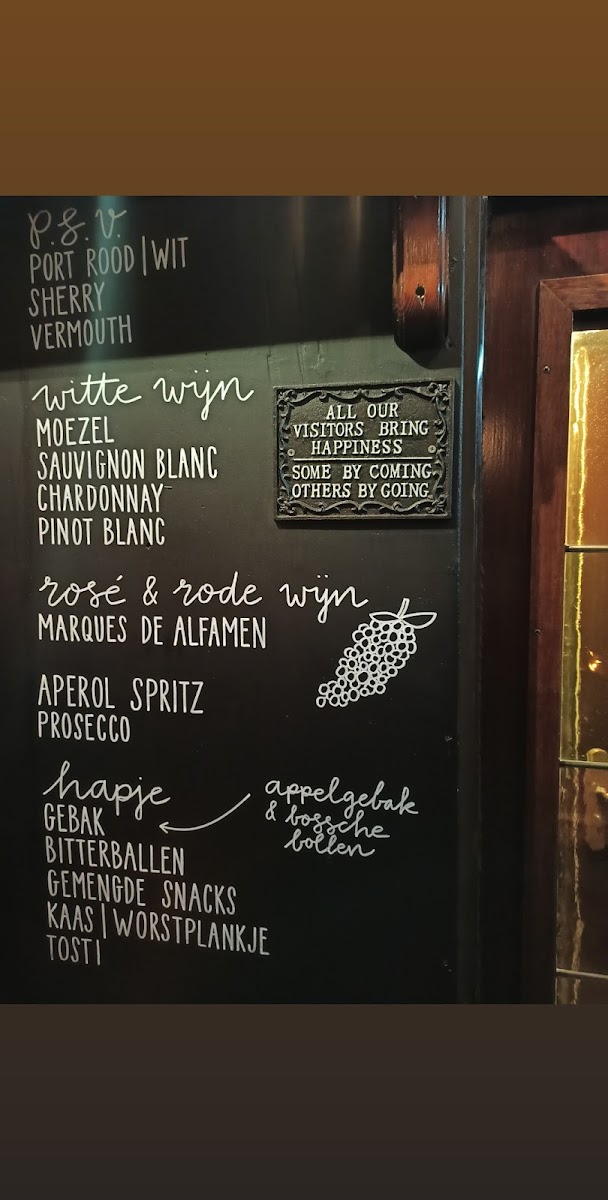 p.s.v.
PORT ROOD | WIT
SHERRY
VERMOUTH
witte wijn
MOEZEL
SAUVIGNON BLANC
CHARDONNAY
PINOT BLANC
ALL OUR
VISITORS BRING
HAPPINESS
SOME BY COMING
OTHERS BY GOING
rosé & rode wijn
MARQUES DE ALFAMEN
APEROL SPRITZ
PROSECCO
hapje
GEBAK
BITTERBALLEN
GEMENGDE SNACKS
KAAS | WORSTPLANKJE
TOSTI
appelgebak
& bossche
bollen